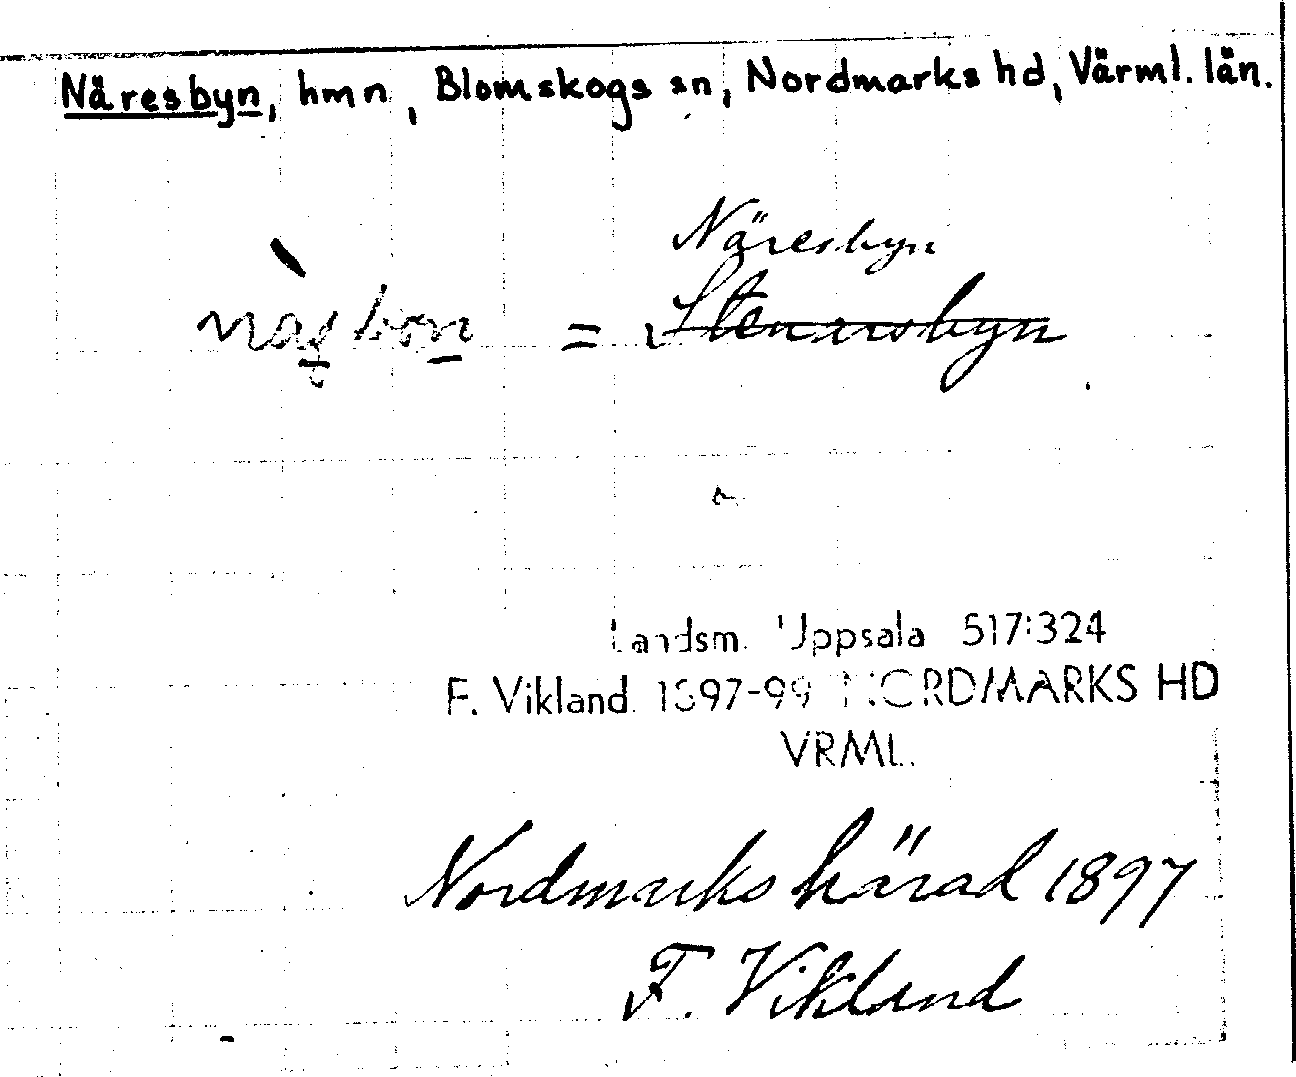 Näresbyn, hmn, Blomskogs sn, Nordmarks hd, Värml. län.
Näresbyn
= Stenarsbyn
Landsm. Uppsala 517:324
F. Vikland 1897-99 NORDMARKS HD
VRML.
Nordmarks härad 1897
F. Vikland